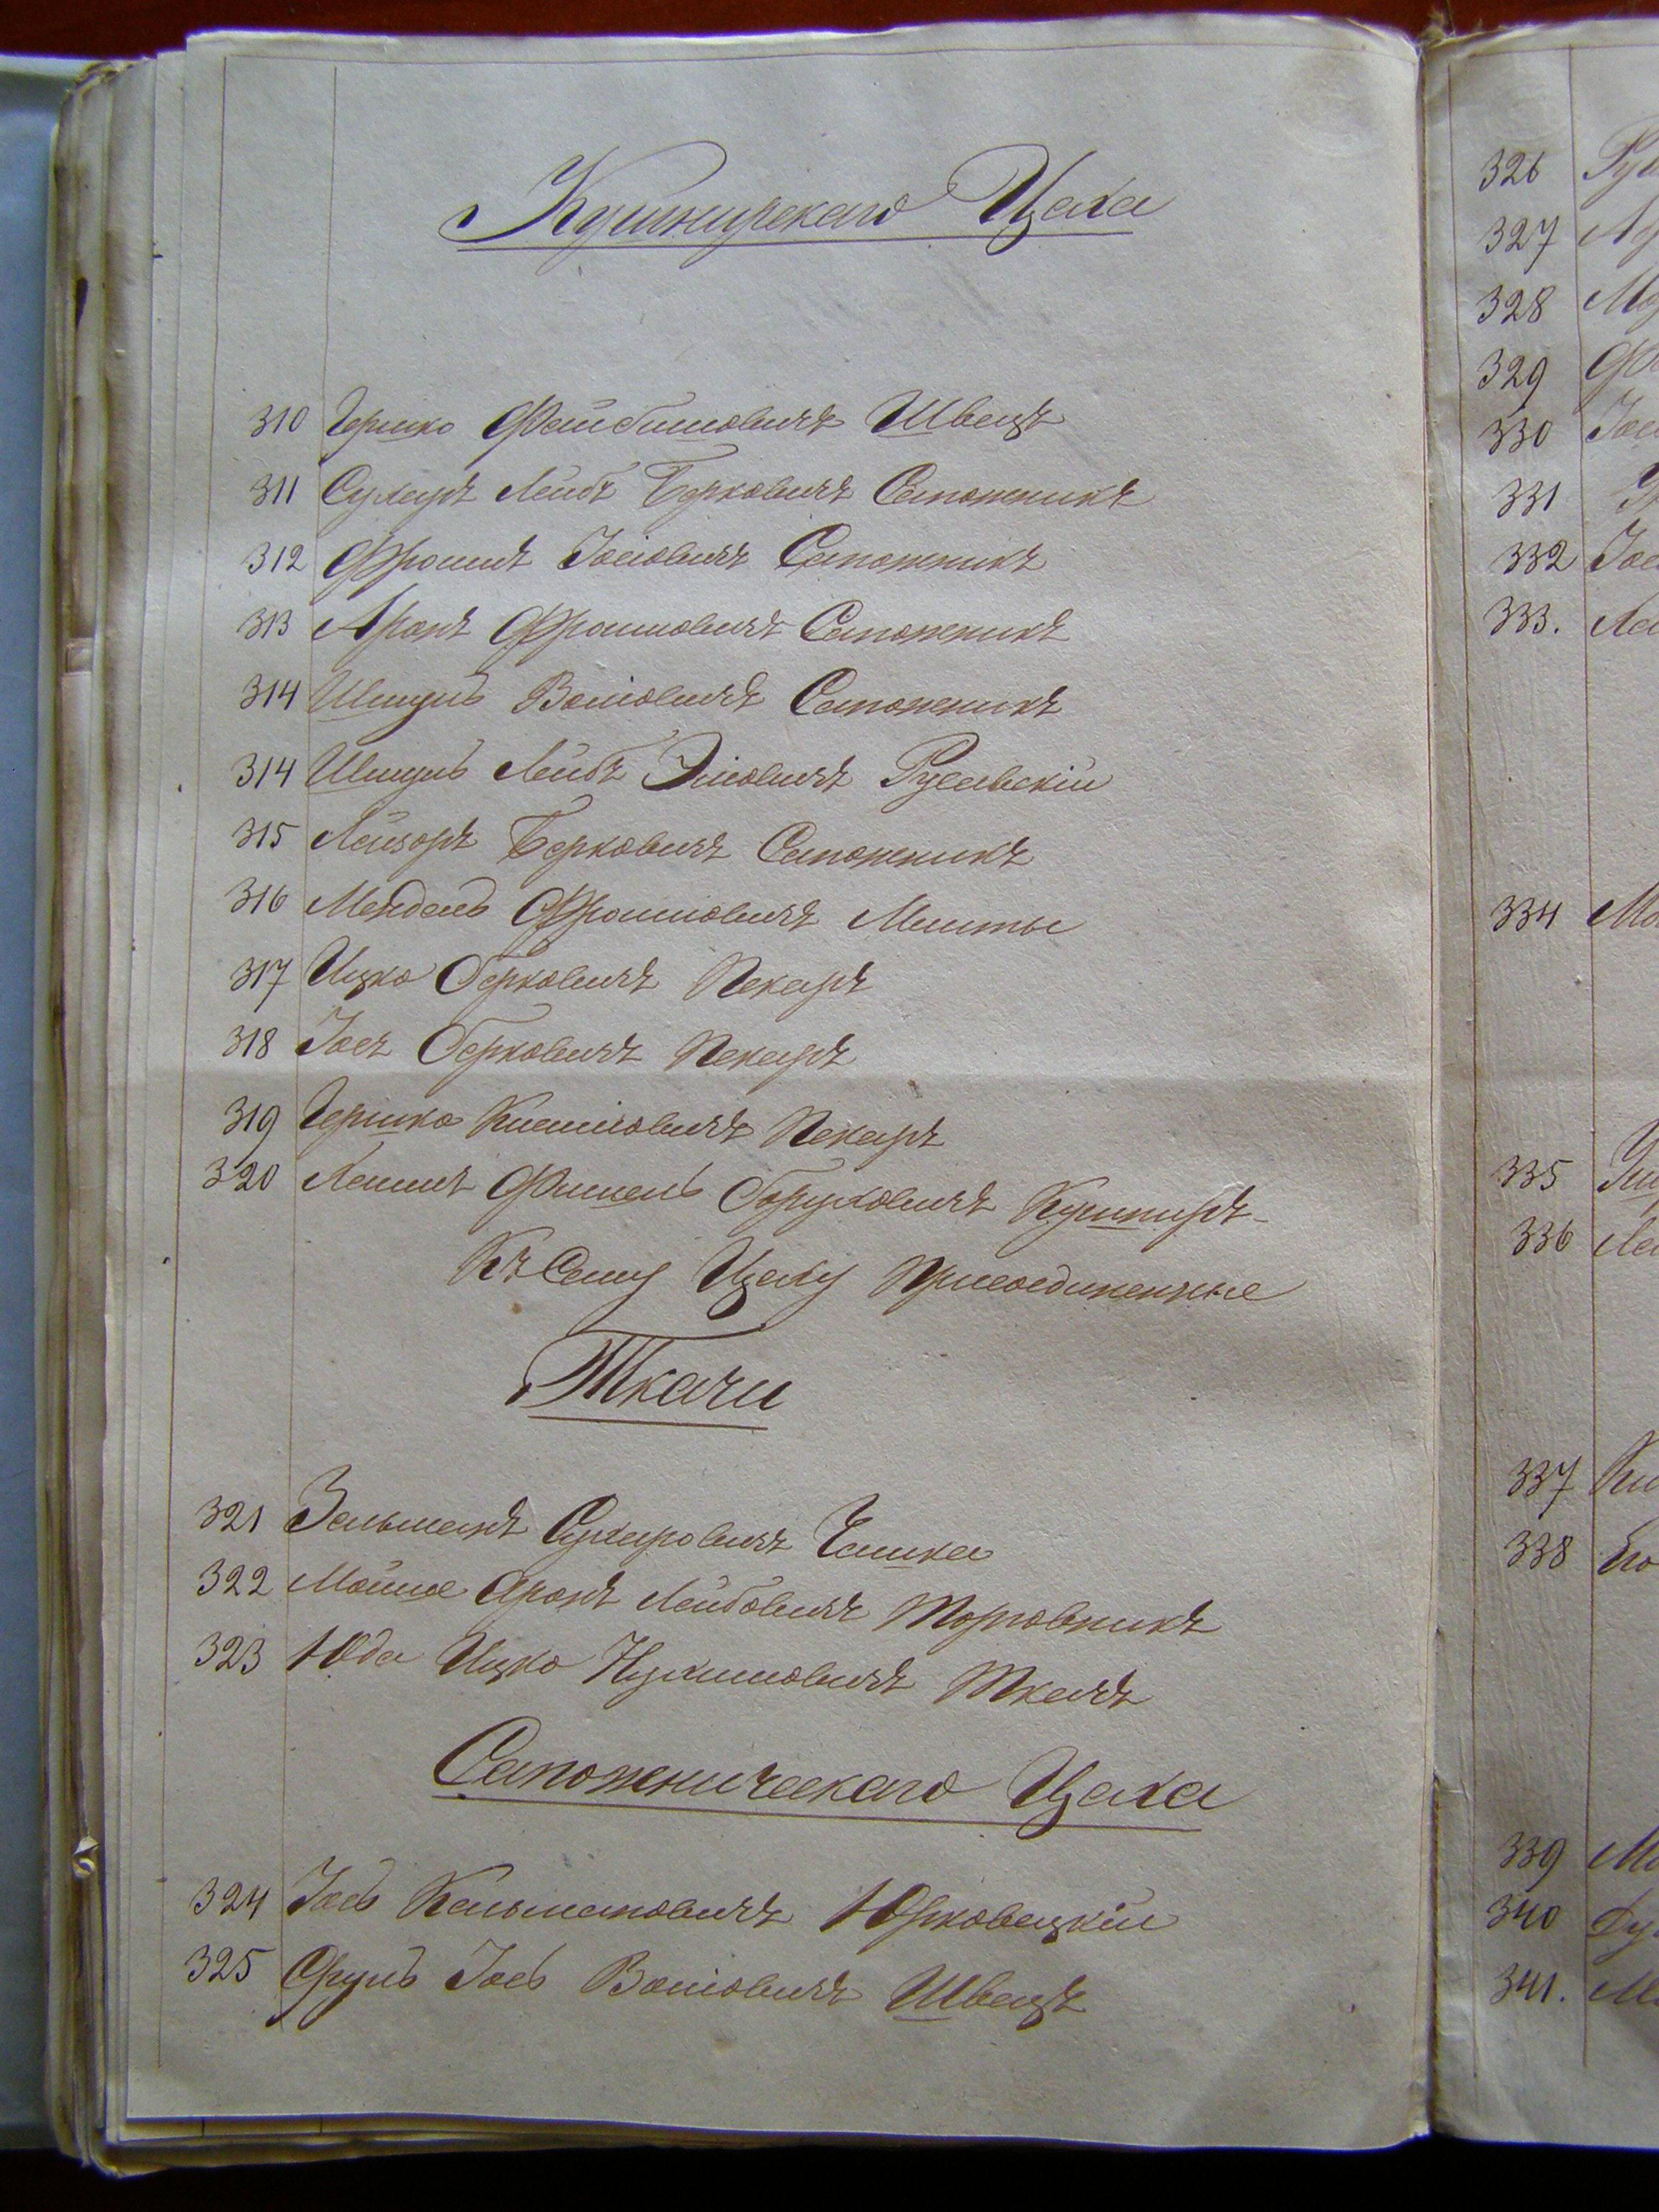 Кушнирскаго Цеха
310 Гершко Файбишовичъ Швецъ
311 Сухаръ Лейбъ Берковичъ Сапожникъ
312 Фроимъ Іосіовичъ Сапожникъ
313 Аронъ Фроимовичъ Сапожникъ
314 Шмуль Волiовичъ Сапожникъ
314 Шмуль Лейбъ Эліовичъ Русавскій
315 Лейзоръ Берковичъ Сапожникъ
316 Мендель Фроимовичъ
317 Ицко Берковичъ Пекаръ
318 Іосъ Берковичъ Пекаръ
319 Гершко Пекаръ
320 Фишель Боруховичъ Кушниръ
Къ Сему Цеху Присоединенные
Ткачи
321 Зельманъ Сухаровичъ Чашка
322 Мойше Аронъ Лейбовичъ Торговникъ
323 Юда Ицко Нухимовичъ Ткачъ
Сапожническаго Цеха
324 Іось Кельмановичъ Юрковецкій
325 Сруль Іось Волiовичъ Швецъ
326
327
328
329
330
331
332
333.
334
335
336
337
338
339
340
341.